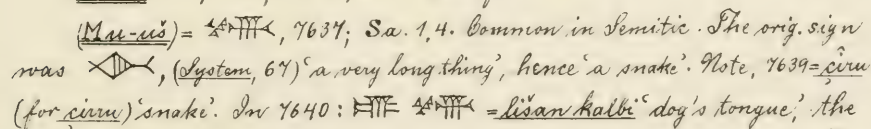 (Mu-uš) = 𒈲, 7637; Sa. 1, 4. Common in Semitic. The orig. sign
was , (System, 67) ‘a very long thing’, hence ‘a snake’. Note, 7639 = çîru
(for çirru) ‘snake’. In 7640: 𒅴 𒈲 = lišan kalbi ‘dog's tongue’, the